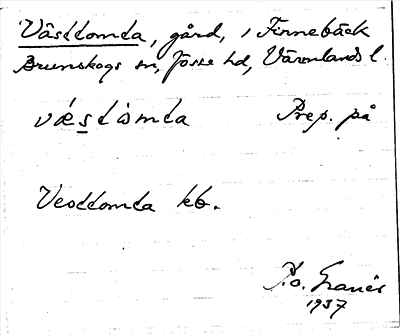 Västtomta, gård, i Finnebäck
Brunskogs sn, Jösse hd, Värmlands l.
vǽstòmta Prep. på
Vesttomta kb.
P.o. Granér
1937